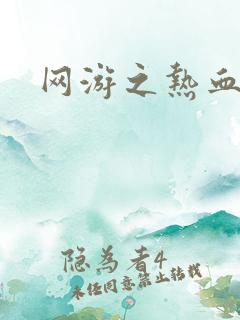 网游之熱血
隐为者4
未经同意禁止转载